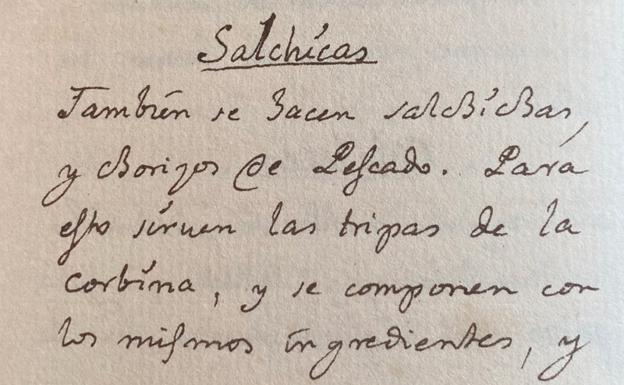 Salchícas
También se hacen salchíchas,
y chorizos de Pescado. Para
esto sírven las tripas de la
corbína, y se componen con
los mismos ingredientes, y